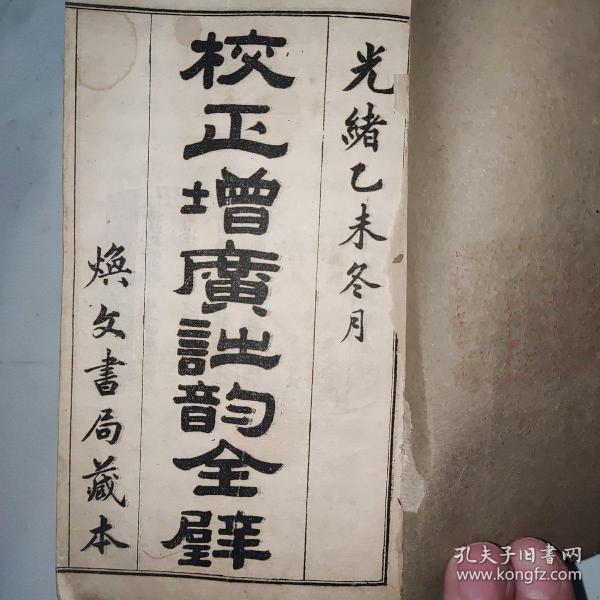 光緒乙未冬月
校正增廣詩韵全璧
煥文書局藏本
孔夫子旧书网
www.kongfz.com